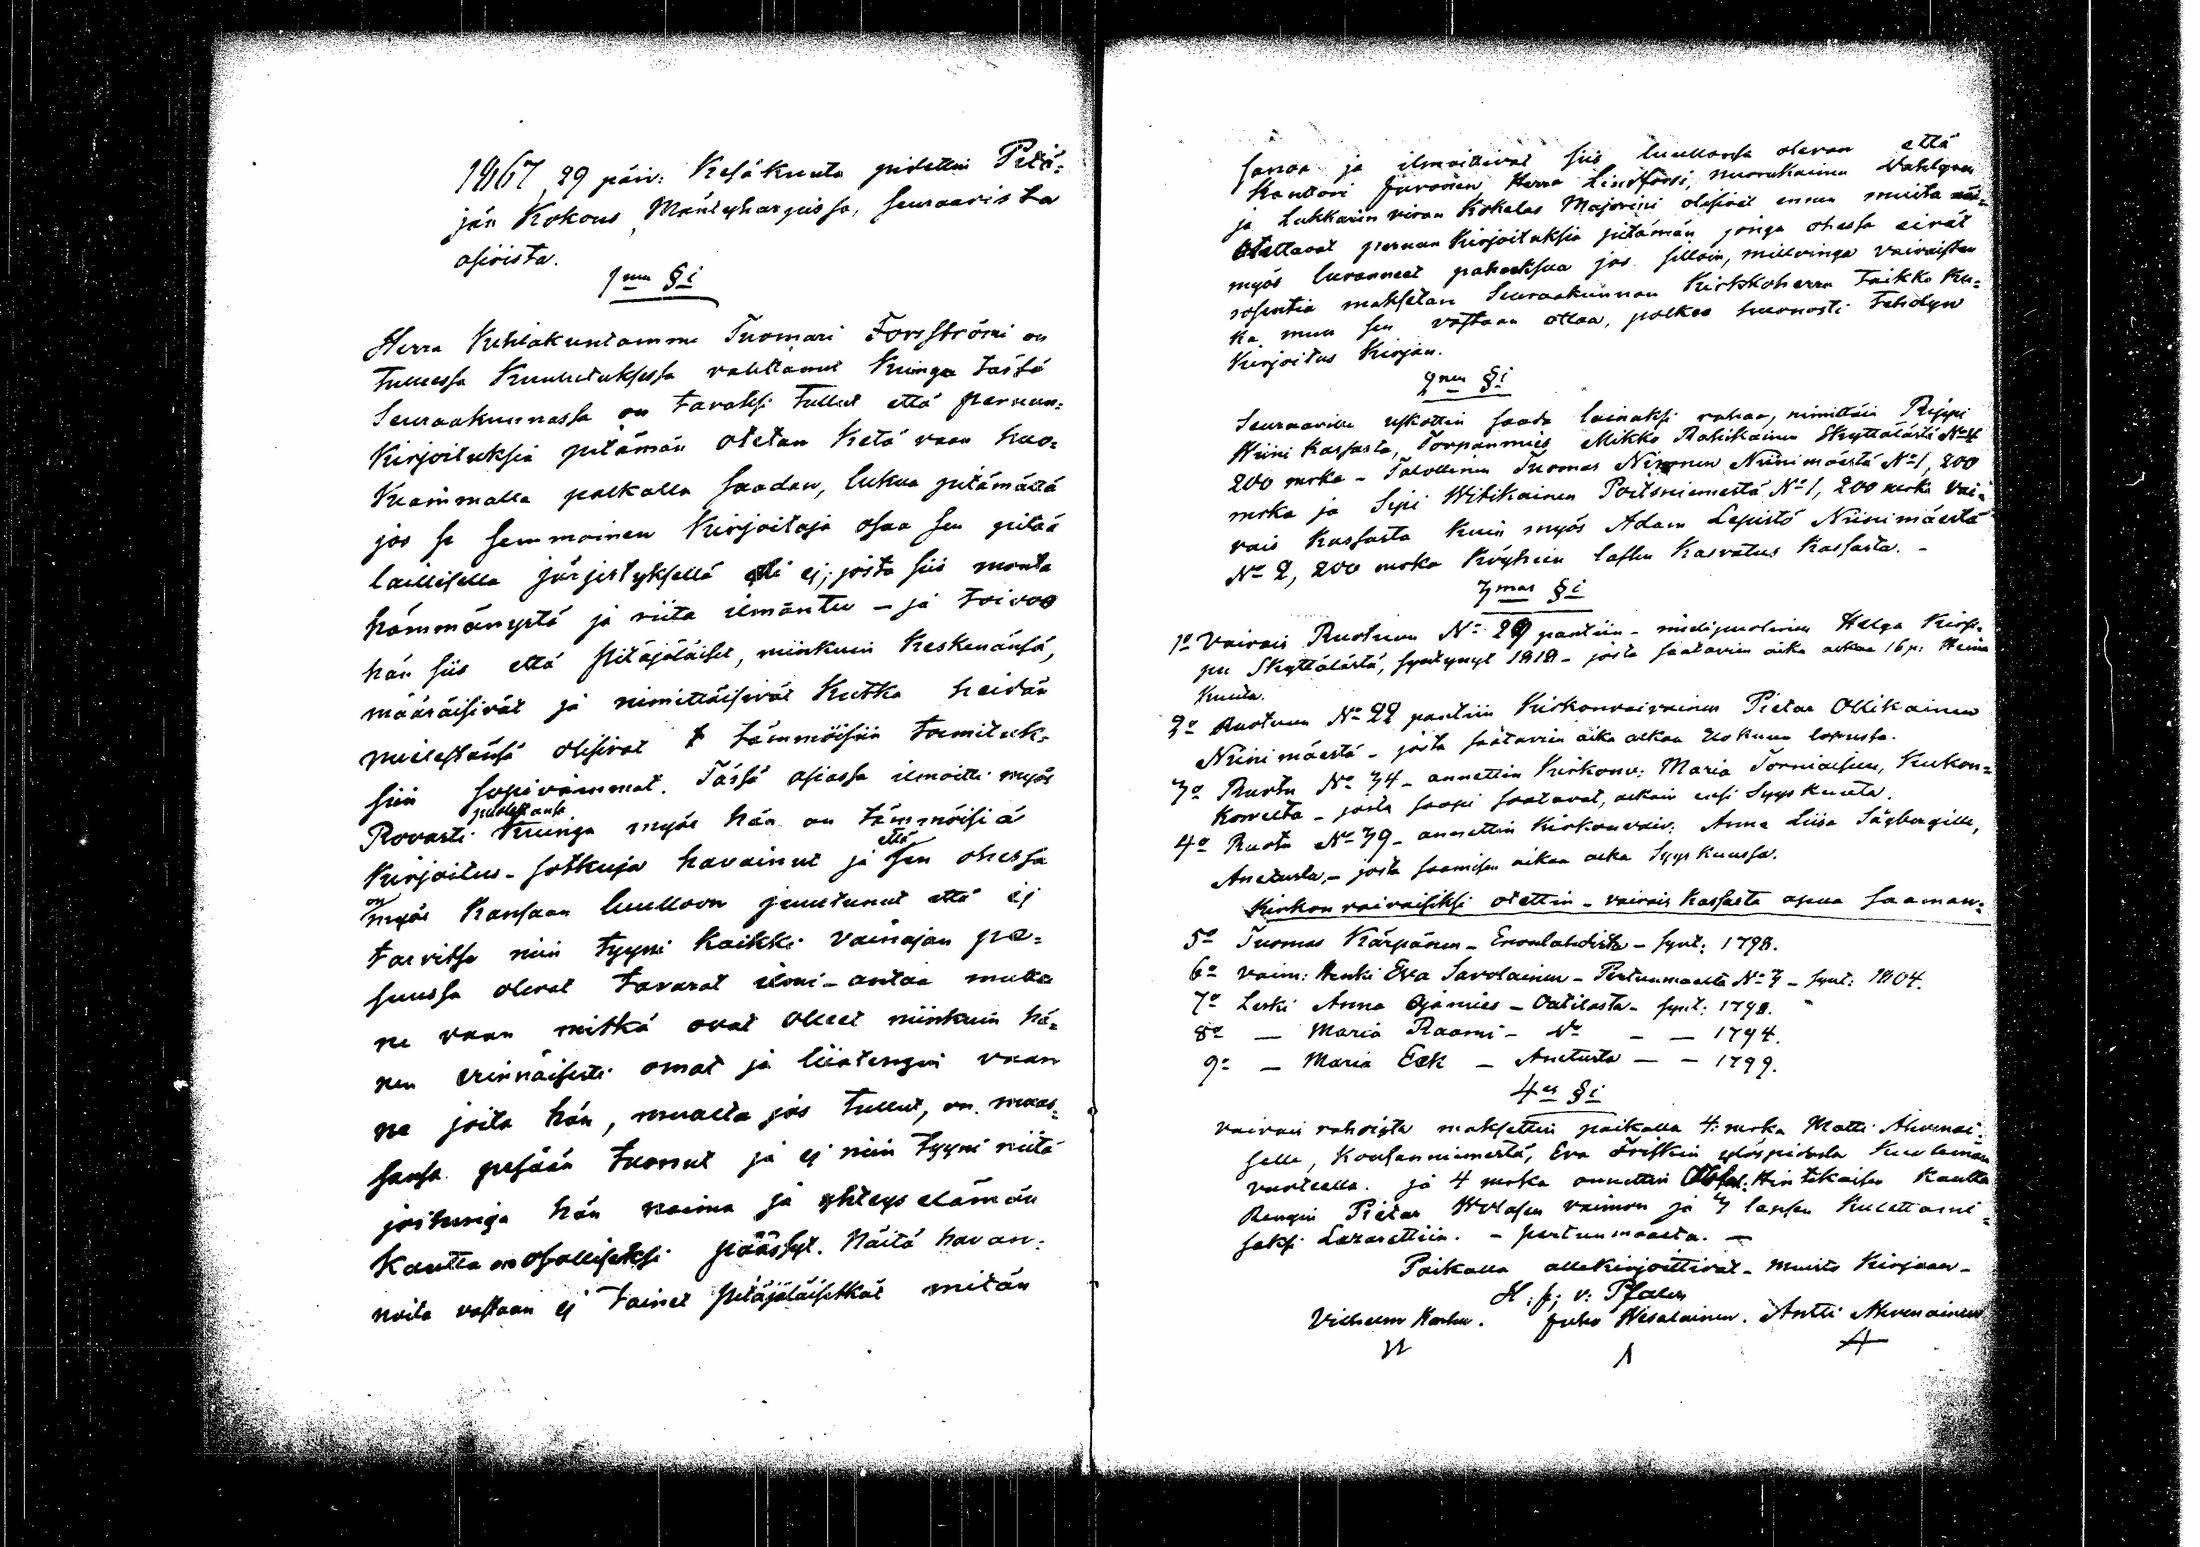 1867, 29 päiv: Kesäkuuta pidettiin Pitä=
jän Kokous, Mäntyharjussa, seuraavista
asioista.
1mu §i
Herra Kihlakuntamme Tuomari Forsströmi on
tulleessa Kuulutuksessa valittanut kuinga tästä
Seurakunnassa on tavaksi tullut että perun=
kirjoituksia pitämän otetan ketä vaan huo=
kiammalla palkalla saadan, lukua pitämättä
jos se semmoinen Kirjoitaja osaa sen pitää
laillisella järjestyksellä eli ej; josta siis monta
hämmänystä ja riita ilmäntu - ja toivoo
hän siis että pitäjäläiset, niinkuin keskenänsä,
määräisivät ja nimittäisivät kutka heidän
mielestänsä olisivat tämmöisiin toimituk-
siin sopivaimmat. Tässä asiassa ilmoitti myös
puolestansa
Rovasti kuinga myös hän on tämmöisiä
että
Kirjoitus-sotkuja havainut ja sen ohessa
on
myös Kansaan luulloon juuttunut että ej
tarvitse niin tyyni kaikki vainajan pe=
suussa olevat tavarat ilmi-antaa mutta
ne vaan mitkä ovat olleet niinkuin hä=
nen erinäisesti omat ja liiatengin vaan
ne joita hän, muualta jos tullut, on muas=
sansa pesään tuonut ja ej niin tyyni niitä
joihinga hän vaimo ja yhteys elämän
kautta on osalliseksi päässyt. Näitä havan=
noita vastaan ej tainet pitäjäläisetkät mitän
sanoa ja ilmoittivat siis luullossa olevan että
Kanttori Juvonen, Herra Lindforsi, nuorukainen Vahlgren
ja Lukkarin viran Kokelas Majorini olisivat ennen muita
otettavat perun Kirjoituksia pitämän jonga ohessa eivät
myös luvanneet pahaksua jos silloin, milloinga vaivaisten
rosentia maksetan Seurakunnan Kirkkoherra taikka ku=
ka muu sen vastaan ottaa, palkaa huonosti tehdyn
Kirjoitus Kirjan.
2mu §i
Seuraaville uskottiin saada lainaksi rahaa, nimittäin Rippi
Hiini kassasta, Torpanmies Mikko Rahikainen Skyttälästä No 4
200 mrka - Talollinen Tuomas Ninonen Niinimäestä No 1, 200
mrka ja Sipi Wihikainen Poitsniemestä No 1, 200 mrka Vai=
vais kassasta kuin myös Adam Lepistö Niinimäestä
No 2, 200 mrka Köyhien lasten kasvatus kassasta. -
3mas §i
1o Vaivais Ruotuun No 29 pantiin - mielipuolinen Helga Kirp=
pu Skyttälästä, syntynyt 1818 - josta saatavien aika alkaa 16 p: Heinä
kuuta.
2o Ruotuun No 22 pantiin Kirkonvaivainen Pietar Ollikainen
Niinimäestä - josta saatavien aika alkaa Elokuun lopussa.
3o Ruotu No 34 - annettiin Kirkonv: Maria Torniaisen, Kukon=
korvelta - josta saapi saatavat, alkain ensi Syyskuuta.
4o Ruotu No 39 - annettiin Kirkonvaiv: Anna Liisa Sägbergille,
Anetusta, - josta saamisen aikaa alka Syyskuussa.
Kirkon vaivaisiksi otettiin - vaivais kassasta apua saaman:
5o Tuomas Kärpänen - Enonlahdista - synt: 1798.
6o vaim: Henki Eva Savolainen - Pertunmaalta No 3 - synt: 1804.
7o Leski Anna Ojamies - Outilasta - synt: 1798.
8o — Maria Raami - do — — 1794.
9o — Maria Eek — Anetusta — — 1799.
4es §i
vaivais rahoista maksettiin paikalla 4: mrka Matti Ahvenai=
selle, Koirsanniemestä, Eva Friskin ylöspidosta Kuoleman
vuoteella. ja 4 mrka annettiin Hintikaisen kautta
Rengin Pietar Wolasen vaimon ja 3 lapsen kulettami=
seksi Lazarettiin. - pertunmaalta. —
Paikalla allekirjoittivat - muisto Kirjaan -
H. f; v: Pfaler
Vilhelm Karhu. Juho Hesalainen. Antti Ahvenainen